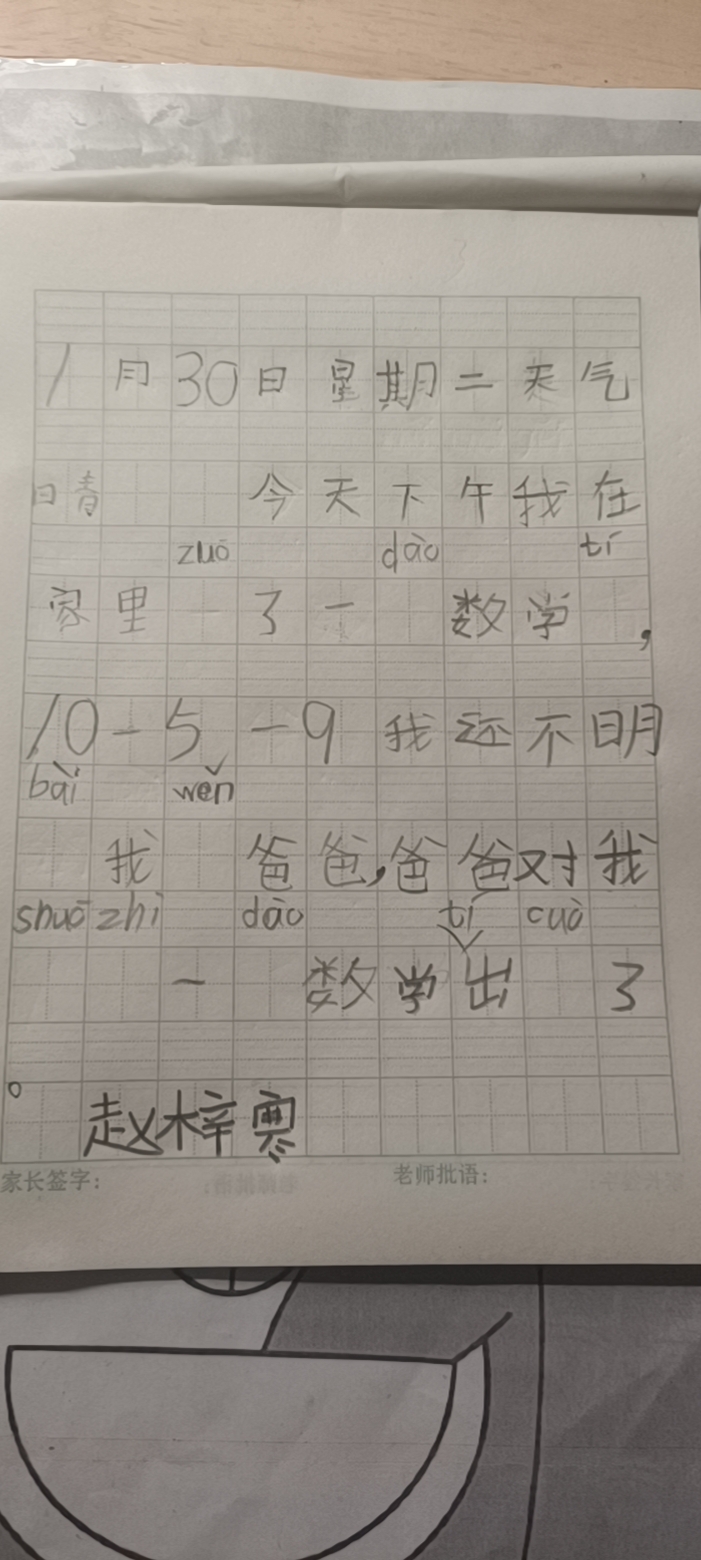 1月30日星期二天气
晴 今天下午我在
zuò dào tí
家里 了一 数学 ,
10-5-9我还不明
bái wèn
我 爸爸,爸爸对我
shuō zhǐ dào tí cuò
一 数学出 了
。 赵梓雯
家长签字： 老师批语：